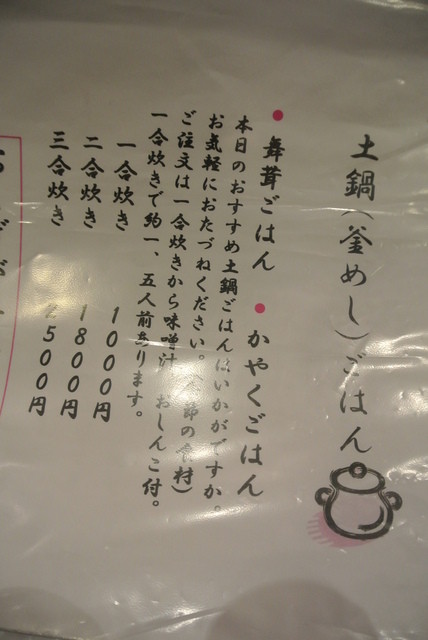 土鍋(釜めし)ごはん
●舞茸ごはん ●かやくごはん
本日のおすすめ土鍋ごはんはいかがですか。
お気軽におたづねください。(季節の食材)
ご注文は一合炊きから味噌汁、おしんこ付。
一合炊きで約一、五人前あります。
一合炊き 1000円
二合炊き 1800円
三合炊き 2500円